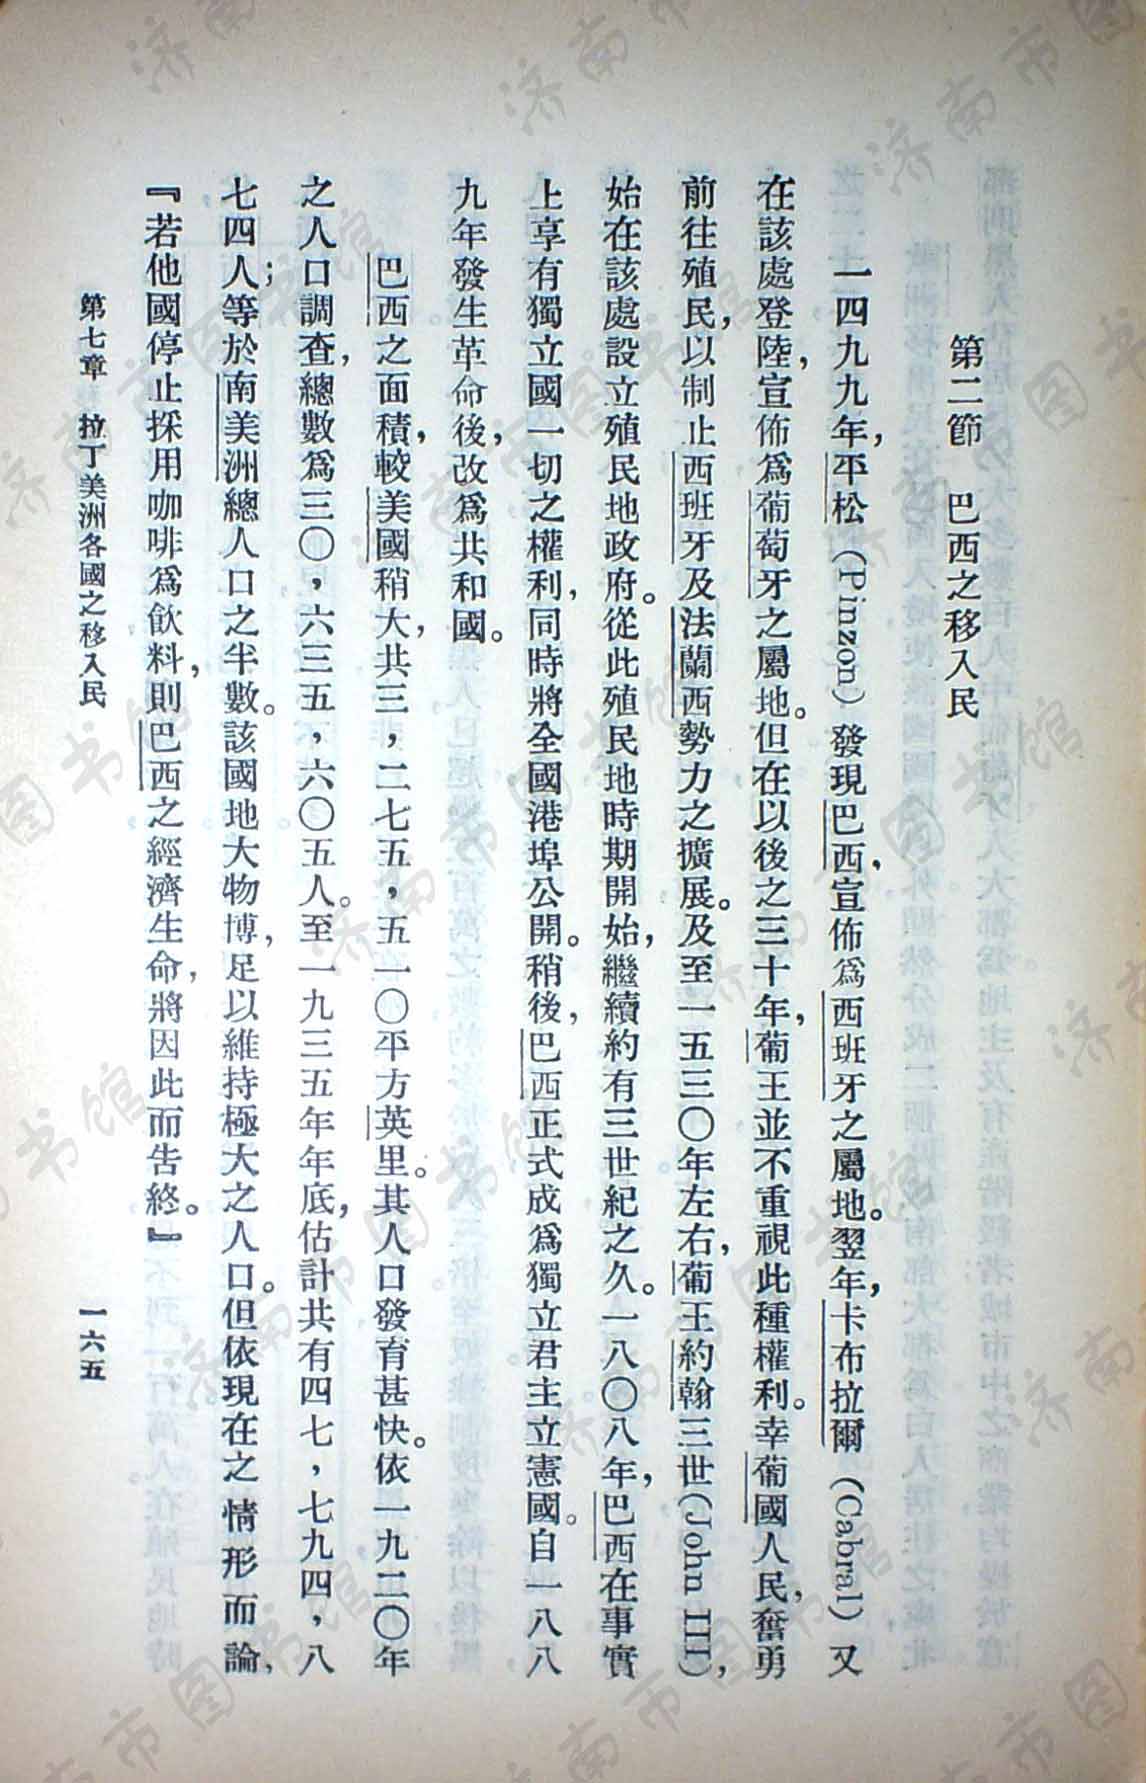 第二節　巴西之移入民
一四九九年，平松（Pinzon）發現巴西，宣佈爲西班牙之屬地。翌年，卡布拉爾（Cabral）又
在該處登陸，宣佈爲葡萄牙之屬地。但在以後之三十年，葡王並不重視此種權利。幸葡國人民，奮勇
前往殖民，以制止西班牙及法蘭西勢力之擴展。及至一五三〇年左右，葡王約翰三世（John III），
始在該處設立殖民地政府。從此殖民地時期開始，繼續約有三世紀之久。一八〇八年，巴西在事實
上享有獨立國一切之權利，同時將全國港埠公開。稍後，巴西正式成爲獨立君主立憲國。自一八八
九年發生革命後，改爲共和國。
巴西之面積，較美國稍大，共三，二七五，五一〇平方英里。其人口發育甚快。依一九二〇年
之人口調查，總數爲三〇，六三五，六〇五人。至一九三五年年底，估計共有四七，七九四，八
七四人；等於南美洲總人口之半數。該國地大物博，足以維持極大之人口。但依現在之情形而論，
『若他國停止採用咖啡爲飲料，則巴西之經濟生命，將因此而告終。』
第七章　拉丁美洲各國之移入民　一六五
济南市图书馆